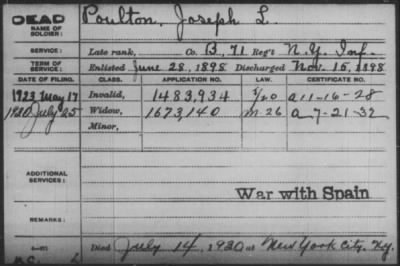 DEAD
NAME OF SOLDIER: Poulton, Joseph L.
SERVICE: Late rank, Co. B, 71 Reg't N.Y. Inf.
TERM OF SERVICE: Enlisted June 28, 1898 Discharged Nov. 15, 1898
DATE OF FILING. CLASS. APPLICATION NO. LAW. CERTIFICATE NO.
1923 May 17 Invalid, 1483,934 a 11-16-28
July 25 Widow, 1673,140 m-26 a 7-21-32
Minor,
ADDITIONAL SERVICES:
War with Spain
REMARKS:
Died July 14, 1930 at New York City, N.Y.